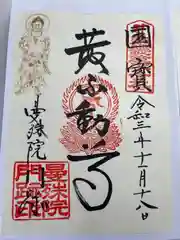 国寳
令和三年十一月十八日
黄不動尊
曼殊院
門跡
曼殊院
門跡